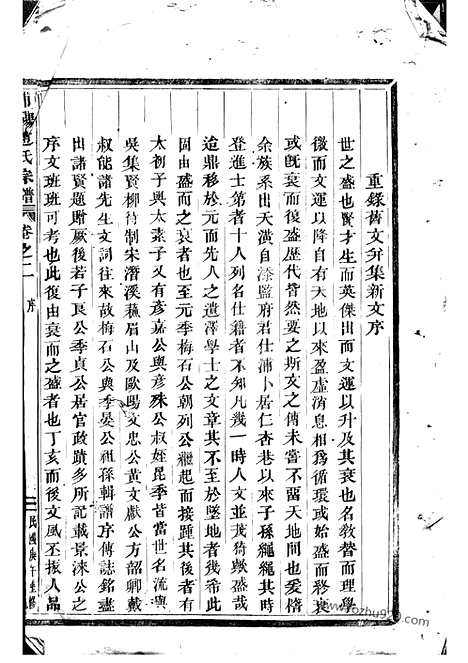 重錄舊文弁集新文序
世之盛也賢才生而英傑出而文運以升及其衰也名教督而理學
微而文運以降自有天地以來盈虛消息相爲循環或始盛而終衰
或旣衰而後盛歷代皆然要之斯文之傳未當不留天地間也爰稽
余族系出天潢自漆監府君仕浦卜居仁杏巷以來子孫繩繩其時
登進士第者十人列名仕籍者不知凡幾一時人文並茂猗歟盛哉
迨鼎移於元而先人之遺澤學士之文章其不至於墜地者幾希此
固由盛而之衰者也至元季梅石公朝列公繼起而接踵其後者有
太初子與太素子又有彥嘉公與彥殊公叔姪昆季皆當世名流與
吳集賢柳待制宋潛溪蘓眉山及歐陽文忠公黃文獻公方韶卿戴
叔能諸先生文詞往來故梅石公與季晏公祖孫輯譜序傳誌銘盡
出諸賢題贈厥後若子艮公季貞公居官政蹟多所記載景涞公之
序文班班可考也此復由衰而之盛者也丁亥而後文風丕振人品
浦陽趙氏宗譜
卷之二
序
一
民國庚午重修
www.zhuhu910.com